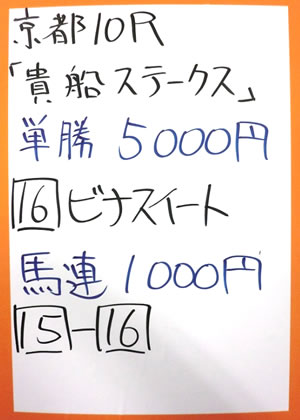 京都10R
「貴船ステークス」
単勝 5000円
16 ビナスイート
馬連 1000円
15-16